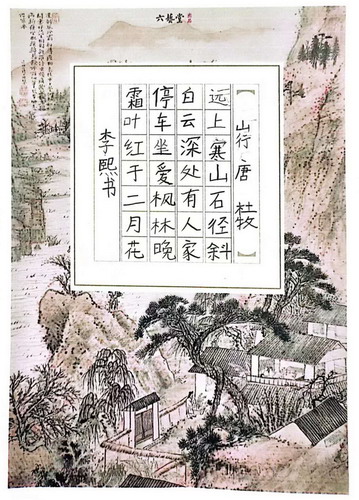 六藝堂
【山行 唐 杜牧】
远上寒山石径斜
白云深处有人家
停车坐爱枫林晚
霜叶红于二月花
李熙书